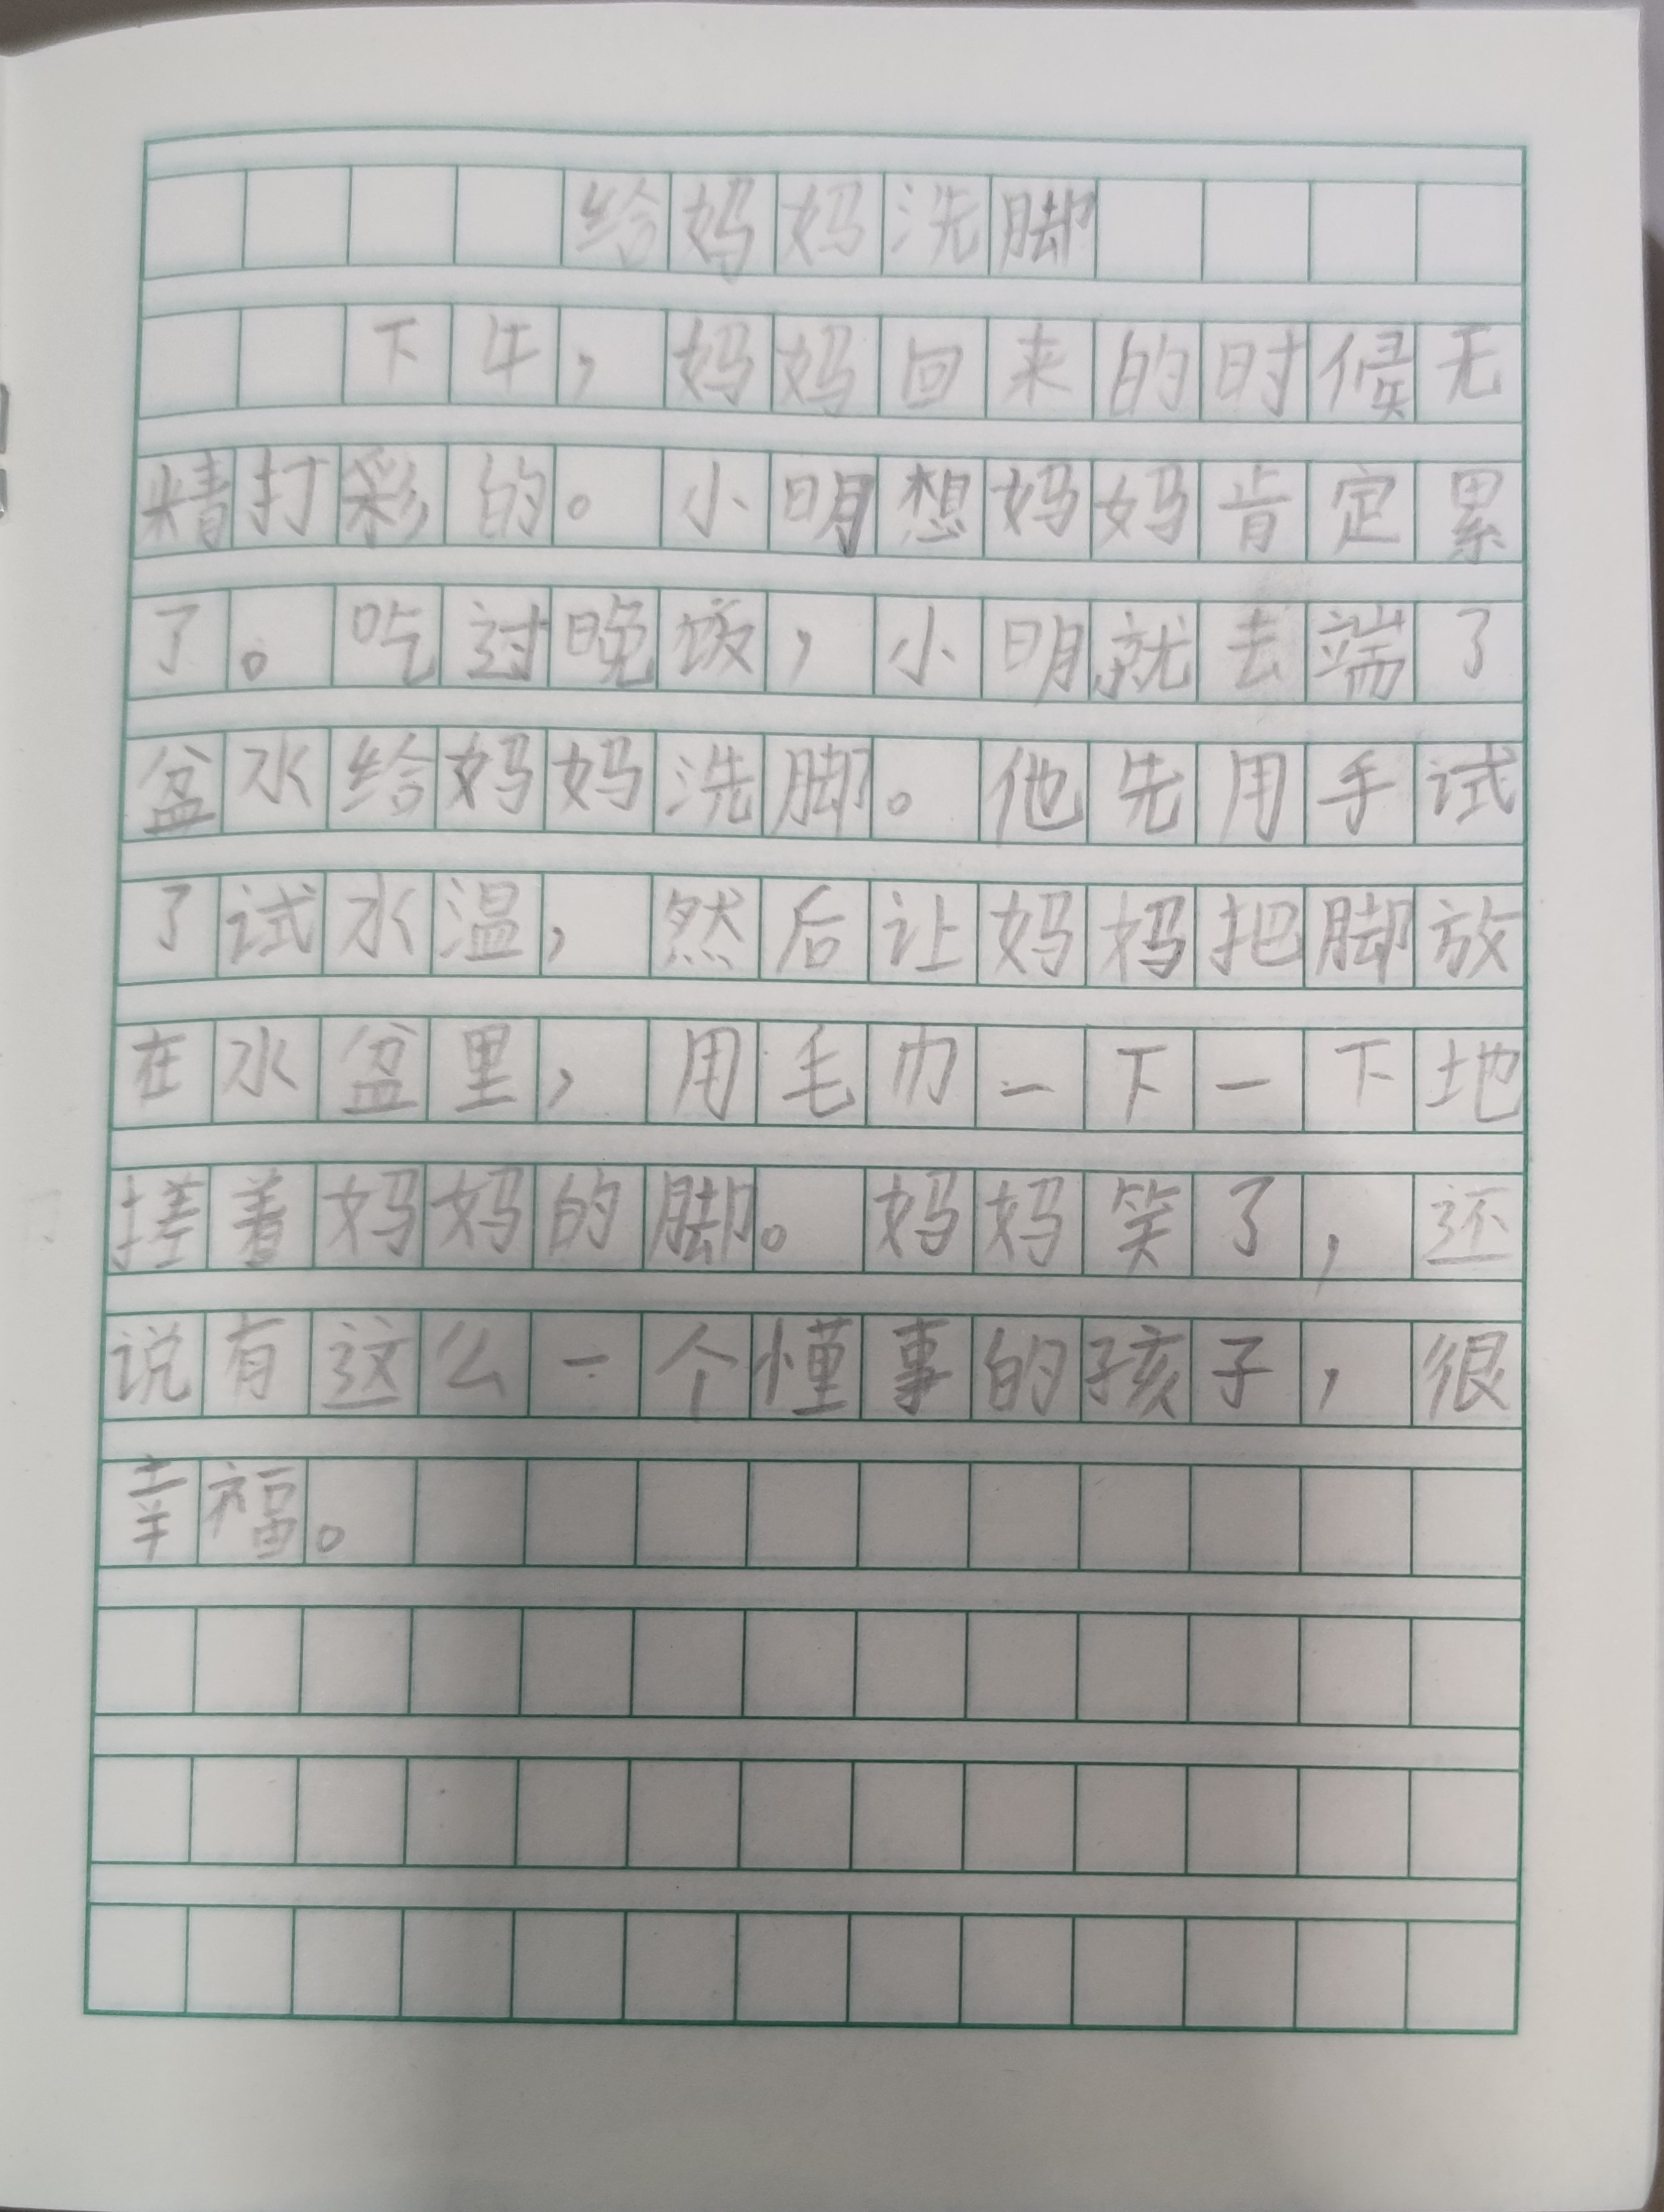 给妈妈洗脚
下午，妈妈回来的时候无
精打彩的。小明想妈妈肯定累
了。吃过晚饭，小明就去端了
盆水给妈妈洗脚。他先用手试
了试水温，然后让妈妈把脚放
在水盆里，用毛巾一下一下地
搓着妈妈的脚。妈妈笑了，还
说有这么一个懂事的孩子，很
幸福。